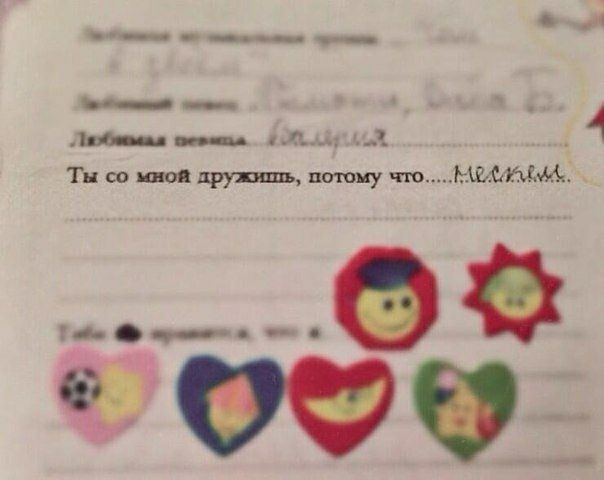 Любимая музыкальная группа Чай
в двоём
Любимый певец Тимати, Дима Б.
Любимая певица Валерия
Ты со мной дружишь, потому что.....нескем
Тебе нравится, что я